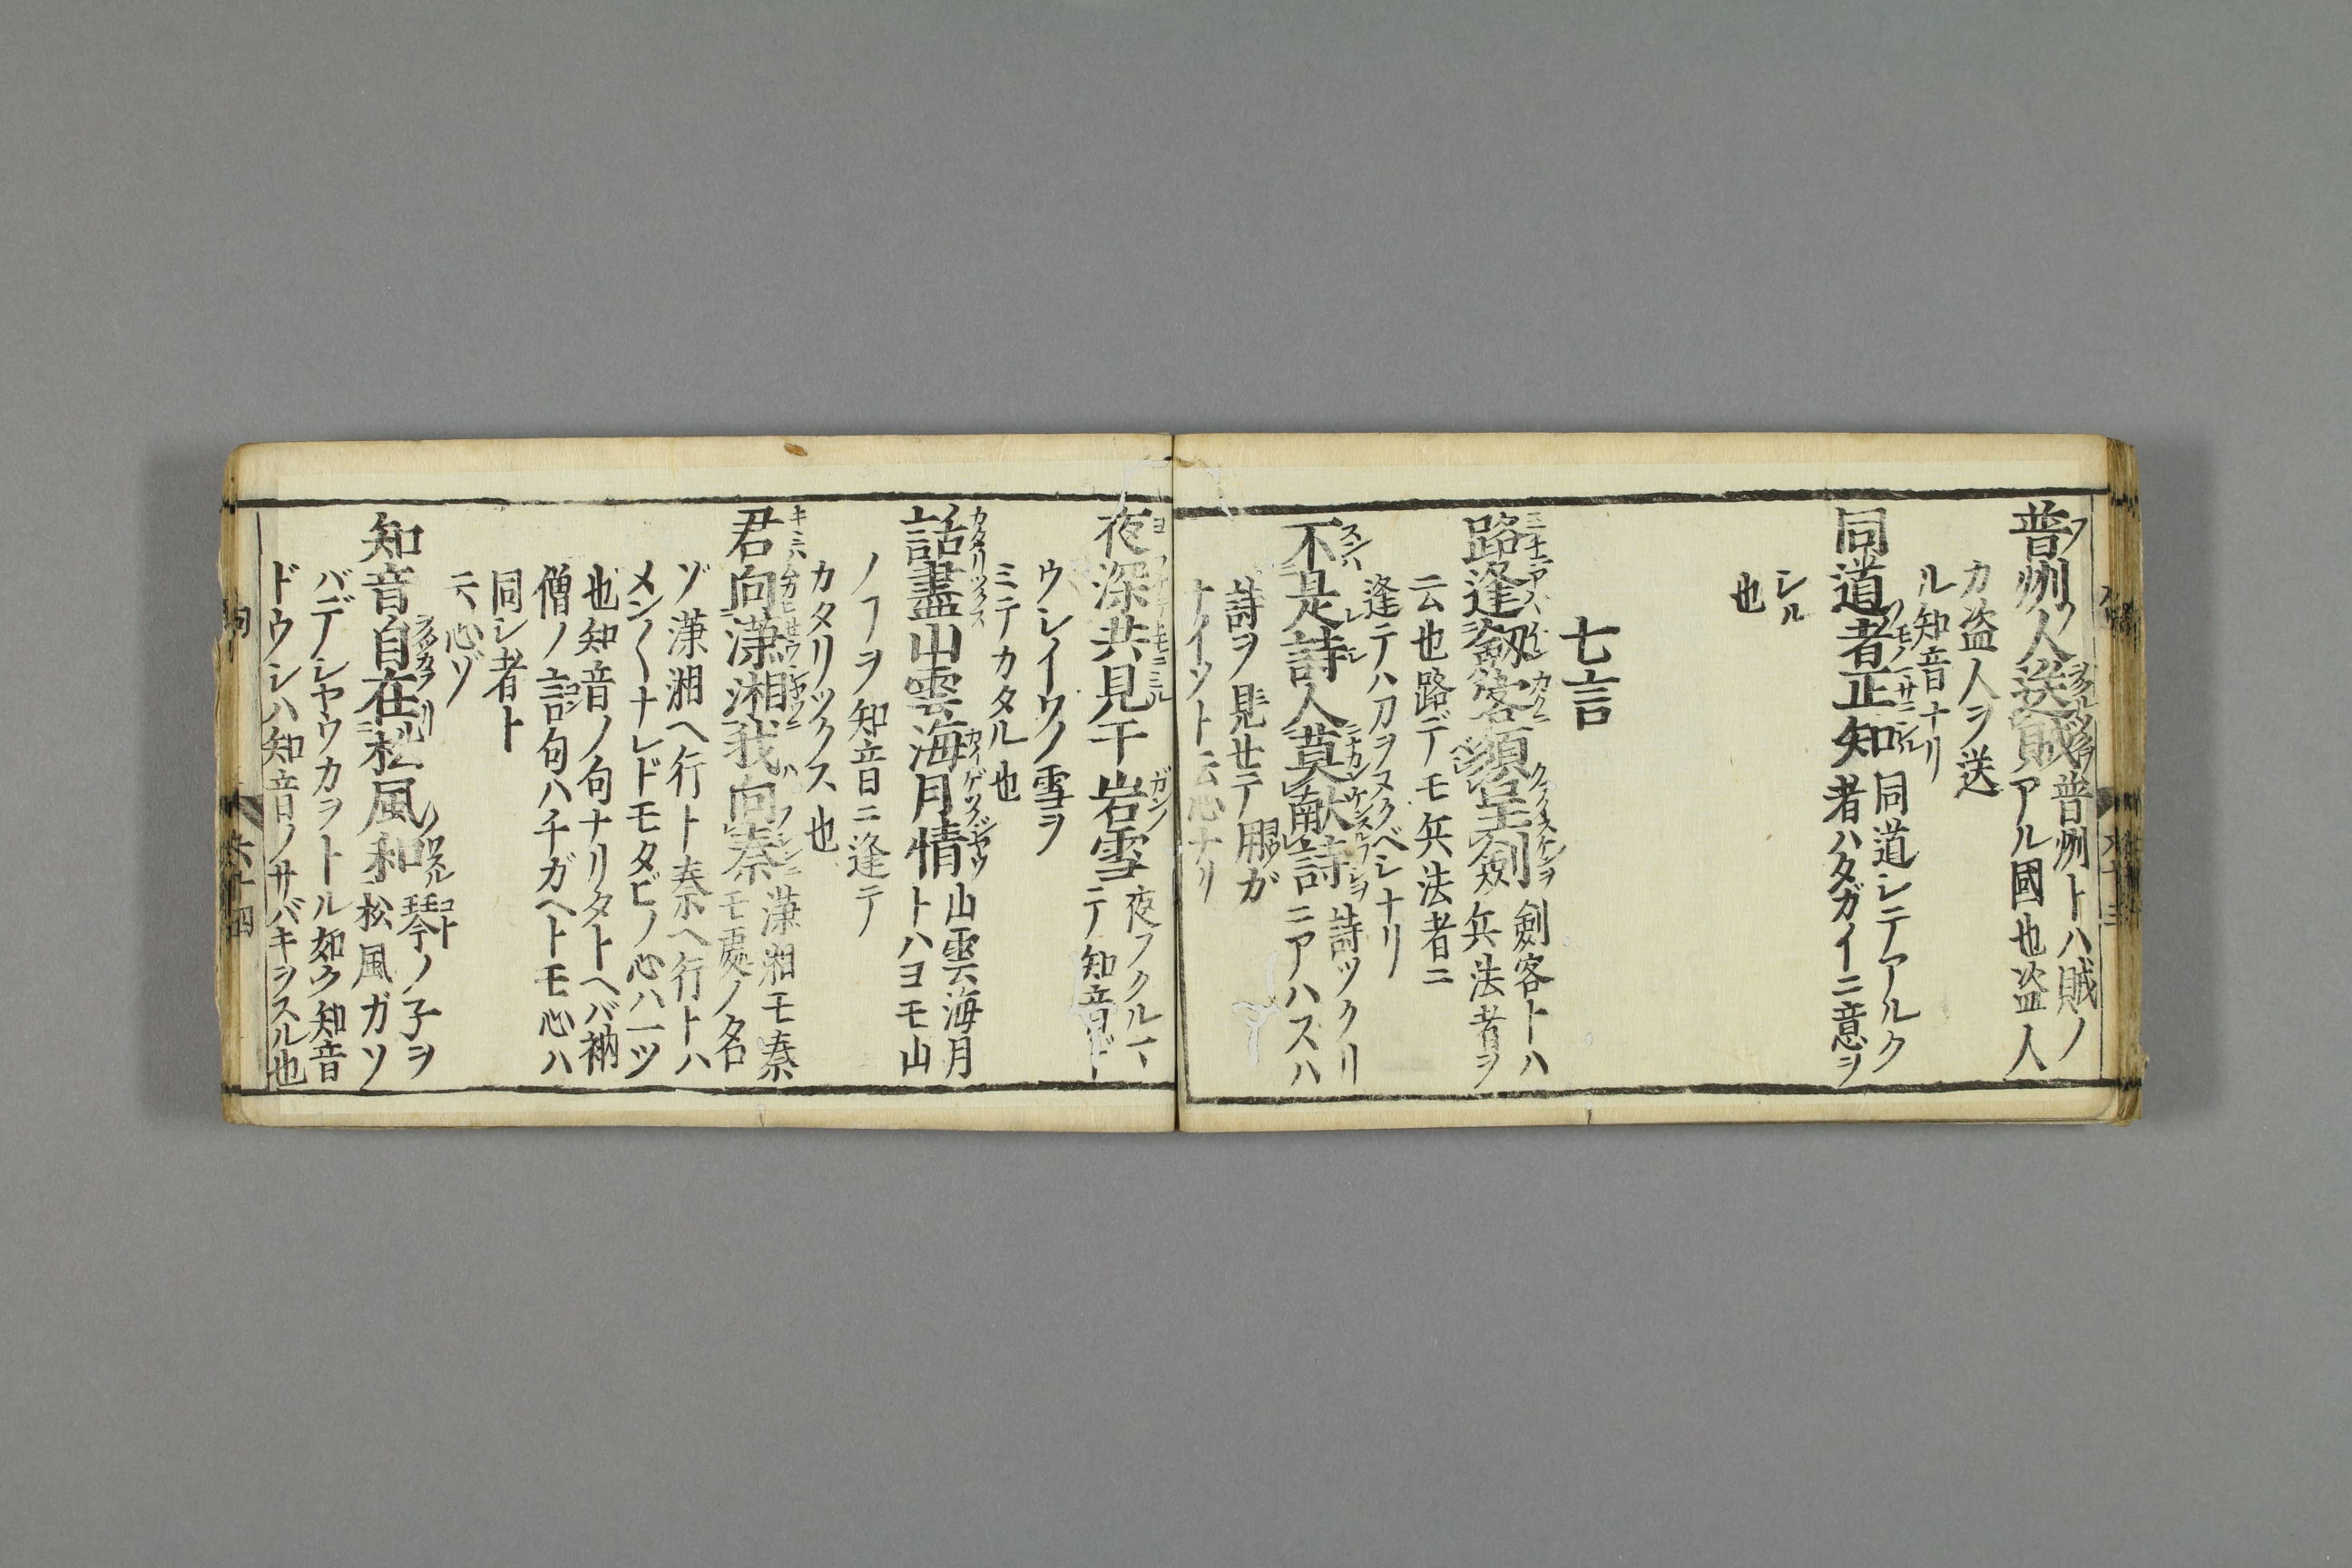 普州人送賊 普州トハ賊ノ
アル國也盗人
カ盗人ヲ送
ル知音ナリ
同道者正知 同道シテアルク
者ハタガイニ意ヲ
シル
也
七言
路逢劔客須呈劍 劍客トハ
兵法者ヲ
云也路デモ兵法者ニ
逢テハ刀ヲヌクベシナリ
不是詩人莫献詩 詩ツクリ
ニアハスハ
詩ヲ見せテ用ガ
ナイソト云心ナリ
夜深共見千岩雪 夜フクルヿ
ニテ知音ド
ウシイワノ雪ヲ
ミテカタル也
話盡山雲海月情 山雲海月
トハヨモ山
ノヿヲ知音ニ逢テ
カタリツクス也
君向潇湘我向秦 潇湘モ秦
モ處ノ名
ゾ潇湘ヘ行ト秦ヘ行トハ
メン〱ナレドモタビノ心ハ一ツ
也知音ノ句ナリタトヘバ衲
僧ノ言句ハチガヘトモ心ハ
同シ者ト
云心ゾ
知音自在松風和 琴ノ子ヲ
松風ガソ
バデシヤウカヲトル如ク知音
ドウシハ知音ノサバキヲスル也
六十四